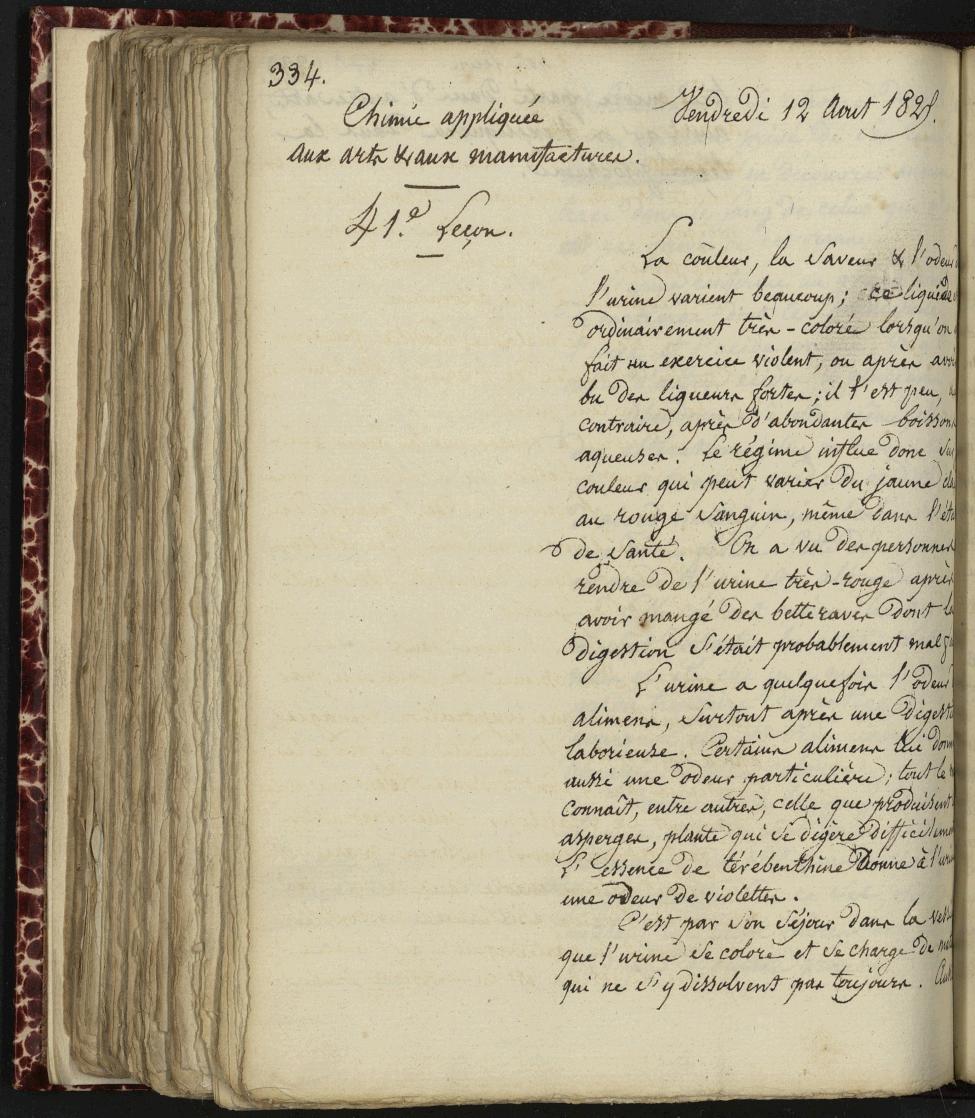 334.
Chimie appliquée
aux arts & aux manufactures.
Vendredi 12 Aout 1825.
41.e Leçon.
La couleur, la saveur & l'odeur
l'urine varient beaucoup; ce liquide
ordinairement très-coloré lorsqu'on
fait un exercice violent, ou après
bu des liqueurs fortes; il l'est peu,
contraire, après d'abondantes boissons
aqueuses. Le régime influe donc
couleur qui peut varier du jaune
au rouge sanguin, même dans
de santé. On a vu des personnes
rendre de l'urine très-rouge après
avoir mangé des betteraves dont
digestion s'était probablement mal
L'urine a quelquefois l'odeur
alimens, surtout après une
laborieuse. Certains alimens lui
aussi une odeur particulière; tout le
connaît, entre autres, celle que produisent
asperges, plante qui se digère
L'essence de térébenthine donne à
une odeur de violettes.
C'est par son séjour dans la
que l'urine se colore et se charge de
qui ne s'y dissolvent pas toujours.